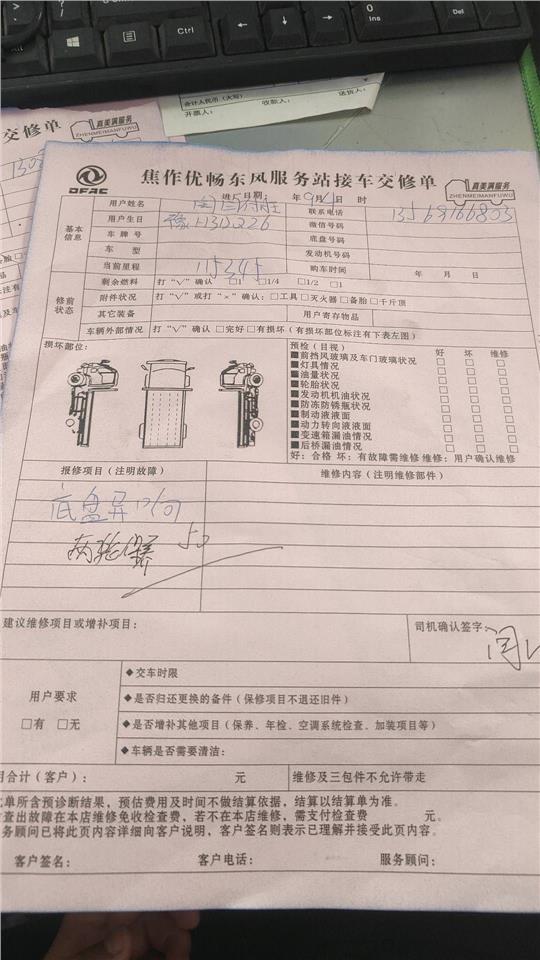 Ins
Del
Ctrl
Alt
会计人民币（大写）
收款人：
送货人：
开票人：
交修单
真美满服务
ZHENMEIMANFUWU
DFAC
焦作优畅东风服务站接车交修单
真美满服务
ZHENMEIMANFUWU
进厂日期： 年9月4日 时
基本信息
用户姓名 联系电话 13569166803
用户生日 微信号码
车牌号 豫H3D226 底盘号码
车型 发动机号码
当前里程 115345 购车时间 年 月 日
修前状态
剩余燃料 打“√”确认 □1/4 □1/2 □1
附件状况 打“√”或打“×”确认：□工具□灭火器□备胎□千斤顶
其它装备 用户寄存物品
车辆外部情况 打“√”确认 □完好□有损坏（有损坏部位标注有下表左图）
损坏部位：
预检（目视） 好 坏 维修
■前挡风玻璃及车门玻璃状况 □ □ □
■灯具情况 □ □ □
■油量状况 □ □ □
■轮胎状况 □ □ □
■发动机机油状况 □ □ □
■防冻防锈瓶状况 □ □ □
■制动液液面 □ □ □
■动力转向液液面 □ □ □
■变速箱漏油情况 □ □ □
■后桥漏油情况 □ □ □
好：合格 坏：有故障需维修 维修：用户确认维修
报修项目（注明故障） 维修内容（注明维修部件）
底盘异响
50
建议维修项目或增补项目：
司机确认签字：
闫
用户要求
□有 □无
◆交车时限
◆是否归还更换的备件（保修项目不退还旧件）
◆是否增补其他项目（保养、年检、空调系统检查、加装项目等）
◆车辆是否需要清洁：
用合计（客户）： 元 维修及三包件不允许带走
单所含预诊断结果，预估费用及时间不做结算依据，结算以结算单为准。
查出故障在本店维修免收检查费，若不在本店维修，需支付检查费 元。
务顾问已将此页内容详细向客户说明，客户签名则表示已理解并接受此页内容。
客户签名： 客户电话： 服务顾问：